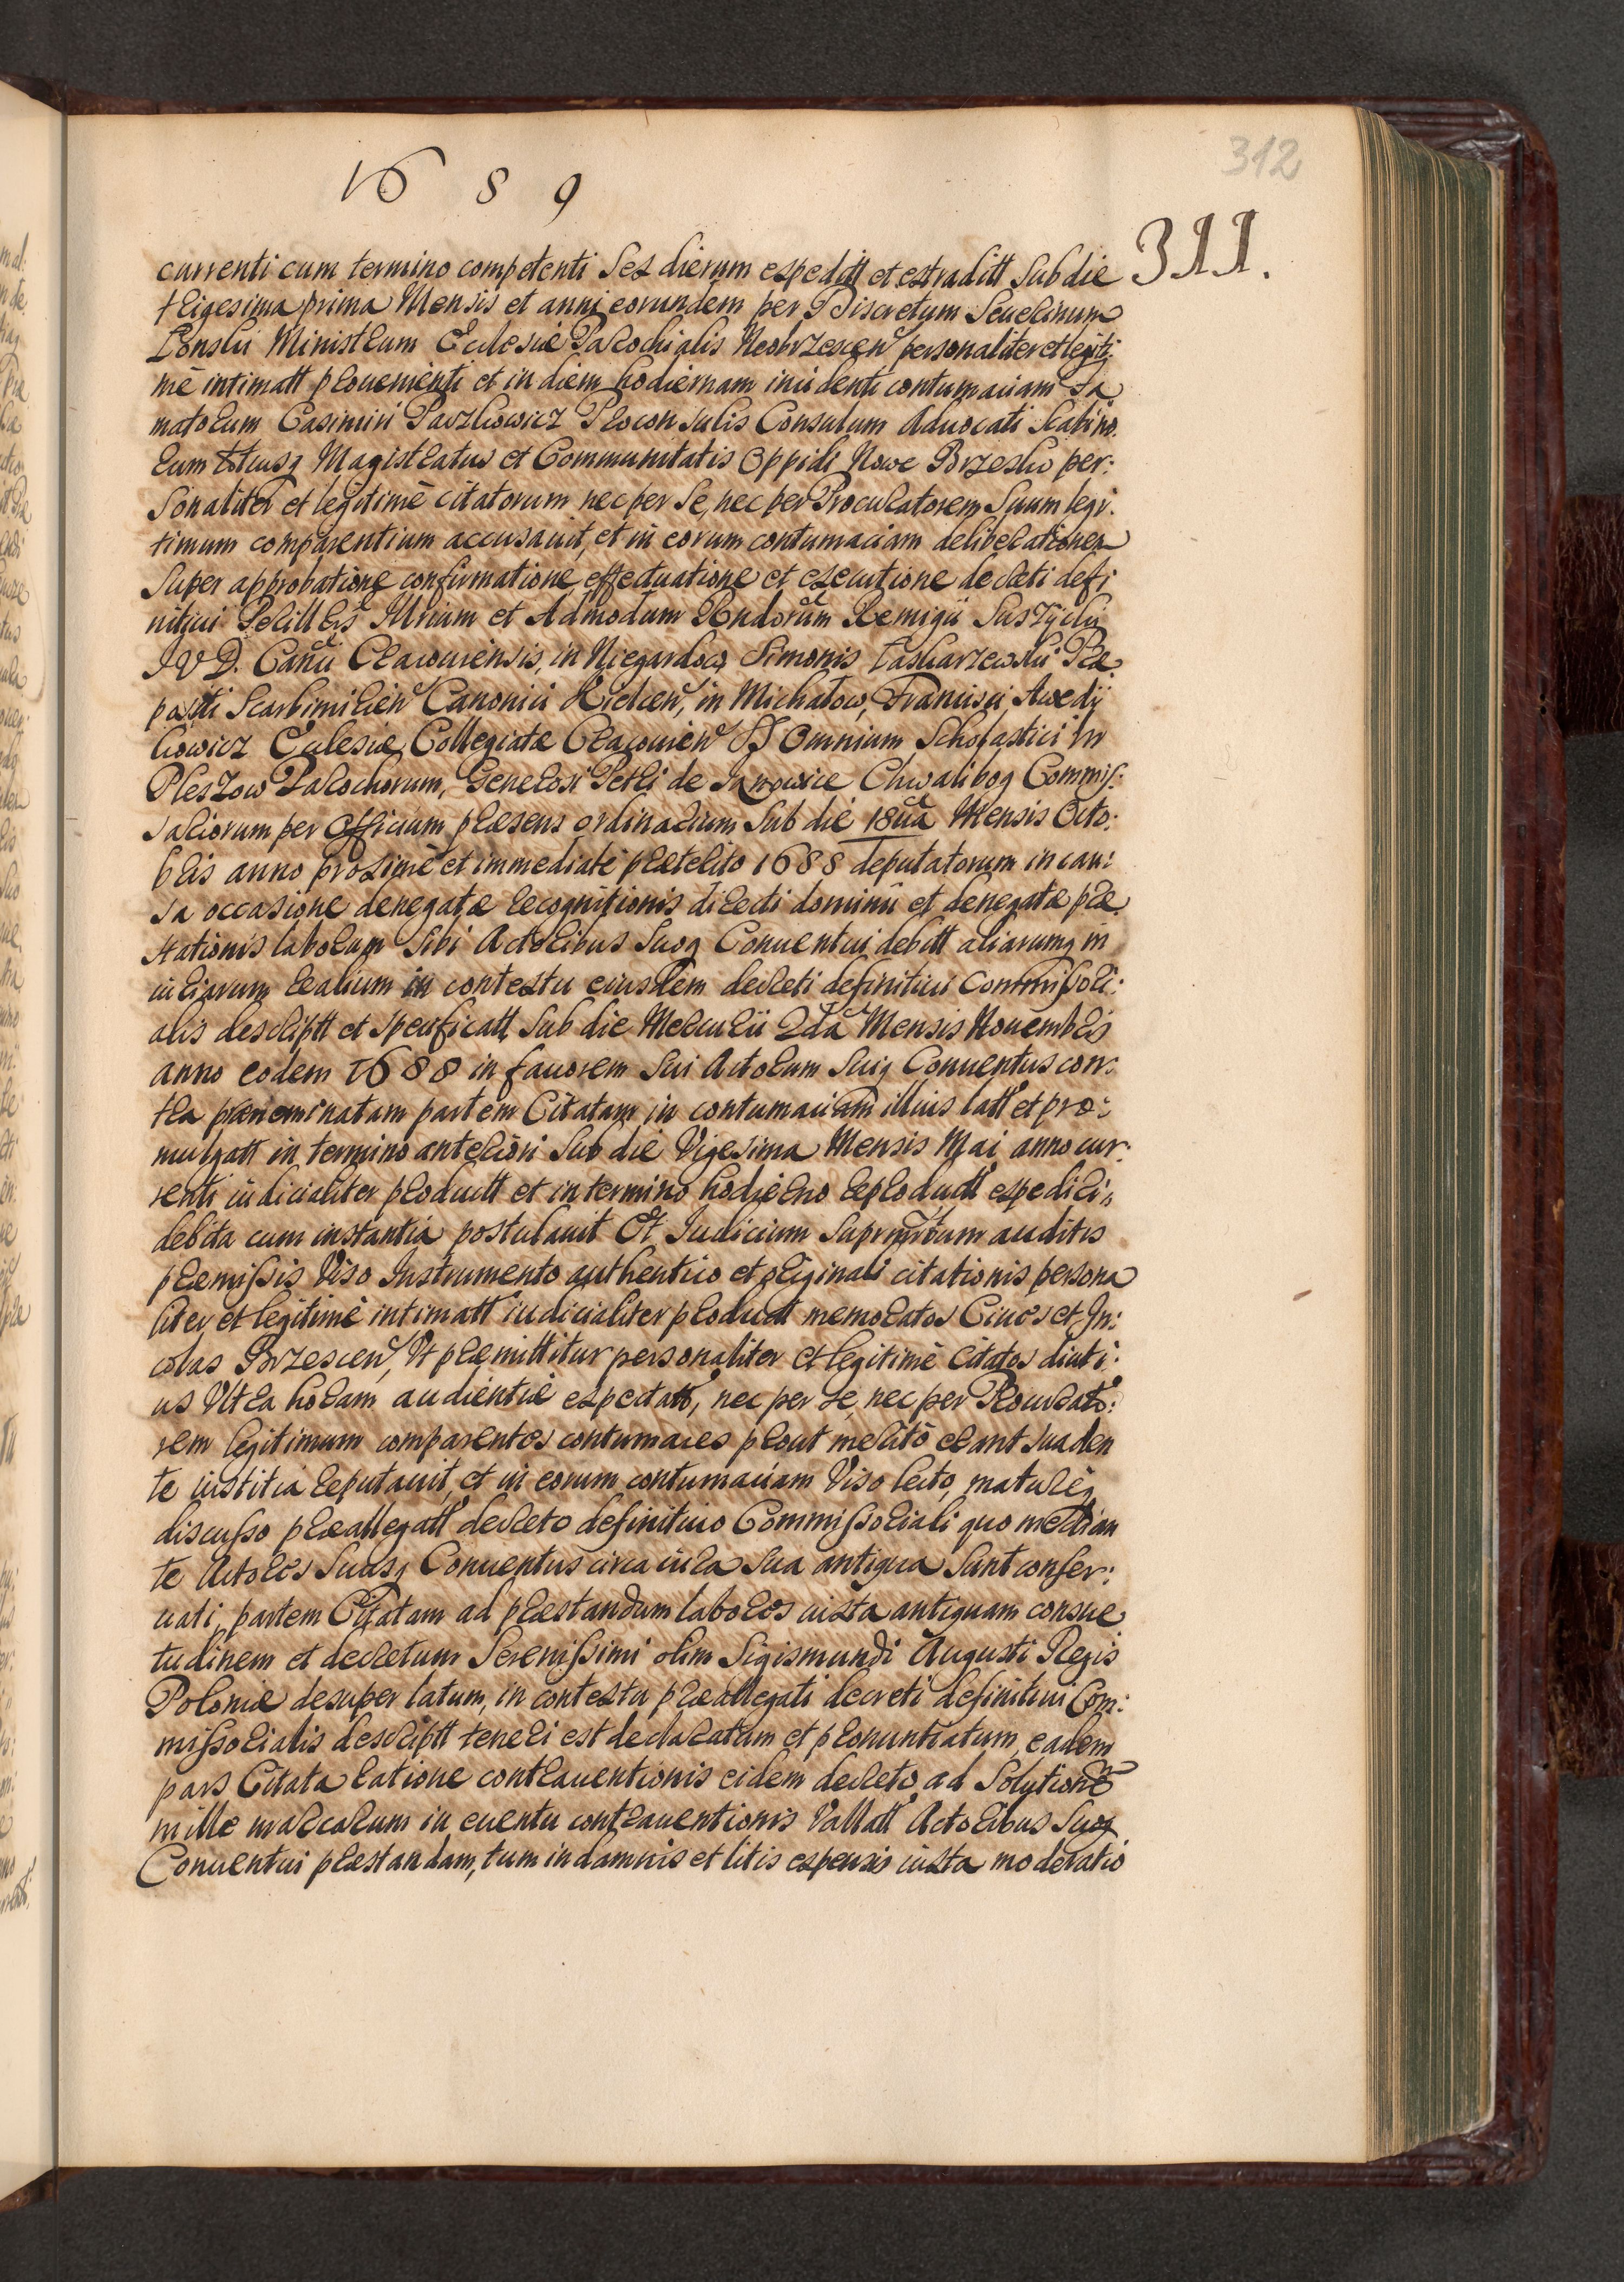 312
1689
311.
currenti cum termino competenti Sex dierum expeditt et extraditt Sub die
trigesima prima Mensis et anni eorundem per Discretum Seuerinum
Konski Ministrum Ecclesiæ Parochialis Neobrzescen personaliter et legiti:
mè intimatt prouenienti et in diem hodiernam incidenti contumaciam Fa
matorum Casimiri Paszkowicz Proconsulis Consulum Aduocati Scabino:
rum totiusq Magistratus et Communitatis Oppidi Nowe Brzesko per:
Sonaliter et legitimè citatorum nec per Se, nec per Procuratorem Suum legi:
timum comparentium accusauit, et in eorum contumaciam deliberationem
Super approbatione confirmatione effectuatione et executione decreti defi
nitiui Perillris Illrium et Admodum Rndorum Remigii Suszycki
I V D. Canci Cracouiensis, in Niegardow Simonis Laskarzewski Præ
positi Scarbimirien Canonici Kielcen, in Michałow, Francisci Awedy
kowicz Ecclesiæ Collegiatæ Cracouien SS Omnium Scholastici in
Pleszow Parochorum, Generosi Petri de Janowice Chwalibog Commis:
sariorum per Officium præsens ordinarium Sub die 18ua Mensis Octo:
bris anno proximè et immediatè præterito 1688 deputatorum in cau:
sa occasione denegatæ recognitionis directi dominii et denegatæ præ
stationis laborum Sibi Actoribus Suoq Conuentui debitt aliarumq in
iuriarum realium in contextu eiusdem decreti definitiui Commissori:
alis descriptt et specificatt Sub die Mercurii 2da Mensis Nouembris
anno eodem 1688 in fauorem Sui Actorum Suiq Conuentus con:
tra prænominatam partem Citatam in contumaciam illius latt et pro:
mulgatt in termino anteriori Sub die Vigesima Mensis Mai anno cur:
renti iudicialiter producitt et in termino hodierno reproductt expediri
debita cum instantia postulauit Et Iudicium Suprmtum auditis
præmissis Viso Instrumento authentico et originali citationis persona
liter et legitimè intimatt iudicialiter productt memoratos Ciues et In:
colas Brzescen, Vt præmittitur personaliter et legitimè citatos diuti:
us Vltra horam audientiæ expectatt, nec per se, nec per Procurato:
rem legitimum comparentes contumaces prout meritò erant suaden
te iustitia reputauit, et in eorum contumaciam Viso lecto, matureq
discusso præallegatt decreto definitiuo Commissoriali quo median
te Actores Suusq Conuentus circa iura Sua antiqua Sunt conser:
uati, partem Citatam ad præstandum labores iuxta antiquam consue
tudinem et decretum Serenissimi olim Sigismundi Augusti Regis
Poloniæ desuper latum, in contextu præallegati decreti definitiui Com:
missorialis descriptt teneri est declaratum et pronuntiatum, eadem
pars Citata ratione contrauentionis eidem decreto, ad Solutionē
mille marcarum in euentu contrauentionis Vallatt Actoribus Suoq
Conuentui præstandam, tum in damnis et litis expensis iuxta moderatio